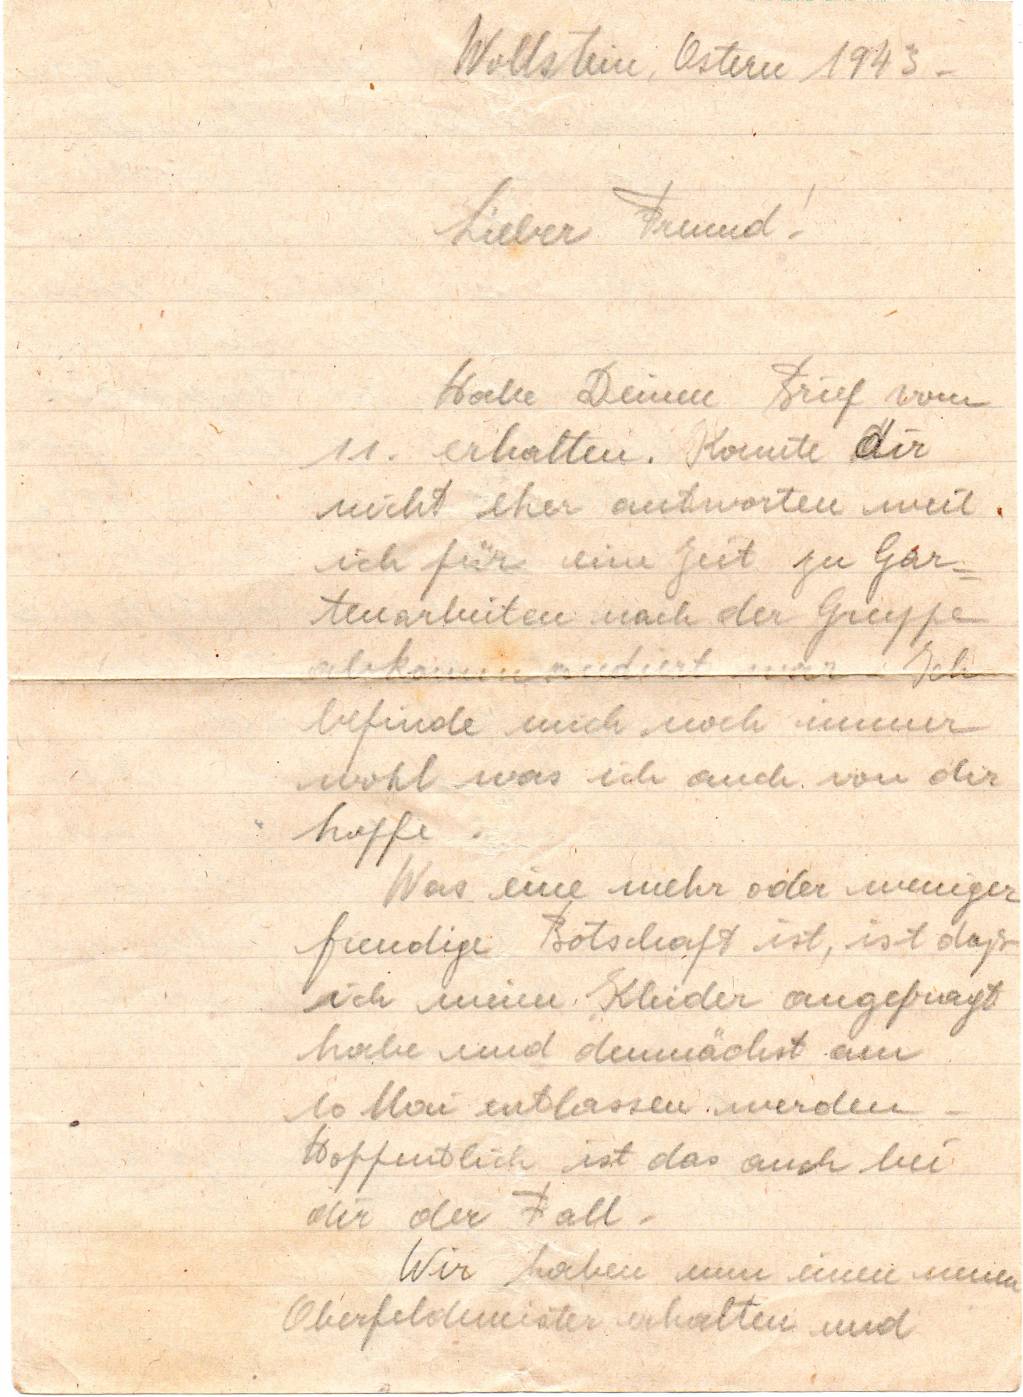 Wollstein, Ostern 1943.-
Lieber Freund!
Habe Deinen Brief vom
11. erhalten. Konnte dir
nicht eher antworten weil
ich für eine Zeit zu Gar=
tenarbeiten nach der Gruppe
abkommandiert war. Ich
befinde mich noch immer
wohl was ich auch von dir
hoffe.
Was eine mehr oder weniger
freudige Botschaft ist, ist daß
ich meine Kleider angefragt
habe und demnächst am
10 Mai entlassen werden -
Hoffentlich ist das auch bei
dir der Fall.-
Wir haben nun einen neuen
Oberfeldmeister erhalten und